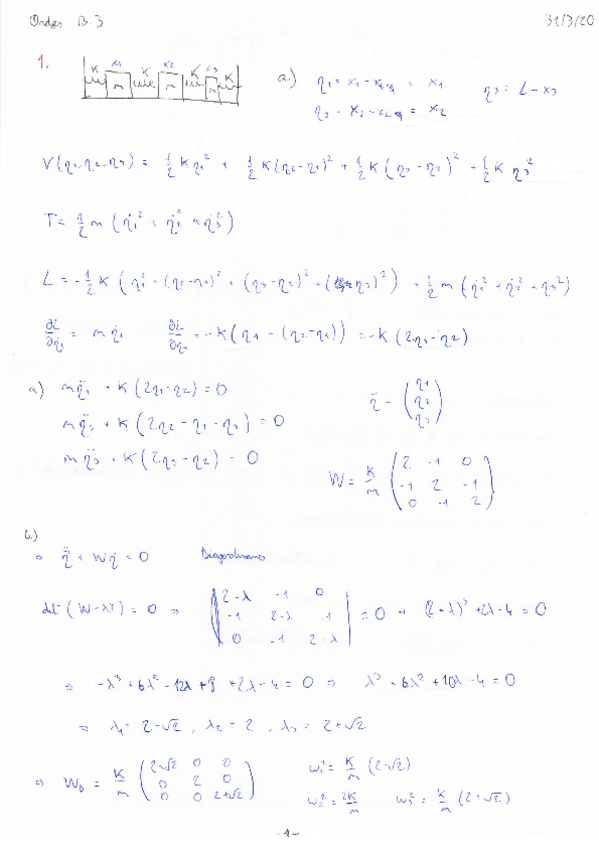 Ondas B.3 31/3/20
1. K x₁ K x₂ K x₃ K
m m m
a) η₁ = x₁ - x₁,eq = x₁ η₃ = L - x₃
η₂ = x₂ - x₂,eq = x₂
V(η₁,η₂,η₃) = ½ K η₁² + ½ K (η₂-η₁)² + ½ K (η₃-η₂)² + ½ K η₃²
T = ½ m (η̇₁² + η̇₂² + η̇₃²)
L = -½ K (η₁² + (η₂-η₁)² + (η₃-η₂)² + (η₃)²) + ½ m (η̇₁² + η̇₂² + η̇₃²)
∂L/∂η̇₁ = m η̇₁ ∂L/∂η₁ = -K(η₁ - (η₂-η₁)) = -K(2η₁-η₂)
a) mη̈₁ + K(2η₁-η₂) = 0 η̄ = (η₁ η₂ η₃)
mη̈₂ + K(2η₂-η₁-η₃) = 0
mη̈₃ + K(2η₃-η₂) = 0
W = K/m (2 -1 0
-1 2 -1
0 -1 2)
b)
⇒ η̈ + Wη = 0 Diagonalizamos
det(W-λI) = 0 ⇒ |2-λ -1 0
-1 2-λ -1
0 -1 2-λ| = 0 → (2-λ)³ + 2λ - 4 = 0
⇒ -λ³ + 6λ² - 12λ + 8 + 2λ - 4 = 0 ⇒ λ³ - 6λ² + 10λ - 4 = 0
⇒ λ₁ = 2-√2, λ₂ = 2, λ₃ = 2+√2
⇒ W_D = K/m (2-√2 0 0
0 2 0
0 0 2+√2)
ω₁² = K/m (2-√2)
ω₂² = 2K/m ω₃² = K/m (2+√2)
-1-